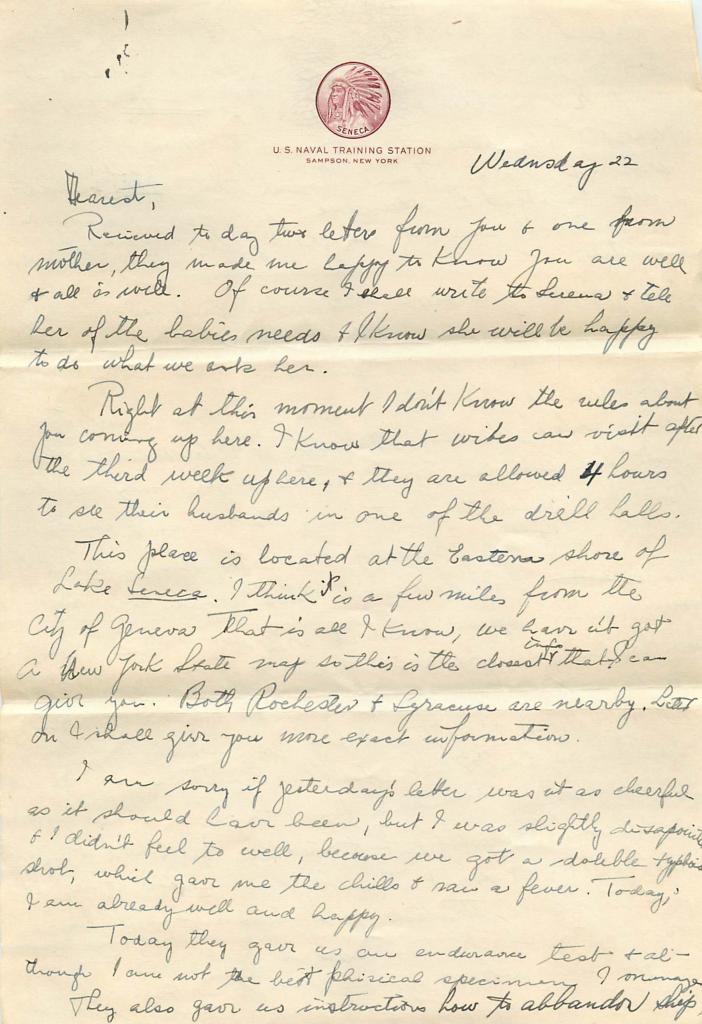 SENECA
U. S. NAVAL TRAINING STATION
SAMPSON, NEW YORK
Wednsday 22
Dearest,
Recieved to day two letters from you & one from
mother, they made me happy to know you are well
& all is well. Of course I shall write to Serena & tell
her of the babies needs & I know she will be happy
to do what we ask her.
Right at this moment I don't know the rules about
you coming up here. I know that wives can visit after
the third week up here, & they are allowed 4 hours
to see their husbands in one of the drill halls.
This place is located at the Eastern shore of
Lake Seneca. I think it is a few miles from the
City of Geneva That is all I know, we have n't got
a New York State map so this is the closest info that I can
give you. Both Rochester & Syracuse are nearby. Later
on I shall give you more exact information.
I am sorry if yesterday's letter was n't as cheerful
as it should have been, but I was slightly disapointed
& I didn't feel to well, because we got a double typhoid
shot, which gave me the chills & ran a fever. Today,
I am already well and happy.
Today they gave us an endurance test & al-
though I am not the best phisical specimen I manage
They also gave us instructions how to abbandon ship